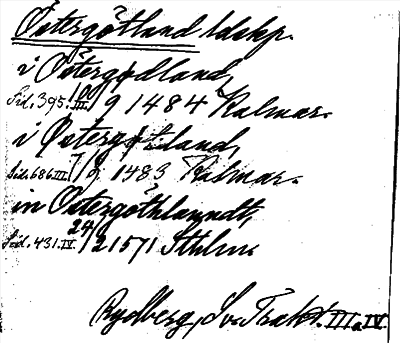 Östergötland ldskp.
i Östergødland,
Sid. 395. III. 10/9 1484 Kalmar.
i Østergøtland,
Sid. 686 III. 7/9 1483 Kalmar.
in Ostergöthlanndt,
Sid. 431. IV. 24/2 1571 Sthlm.
Rydberg, Sv. Trakt. III a. IV.